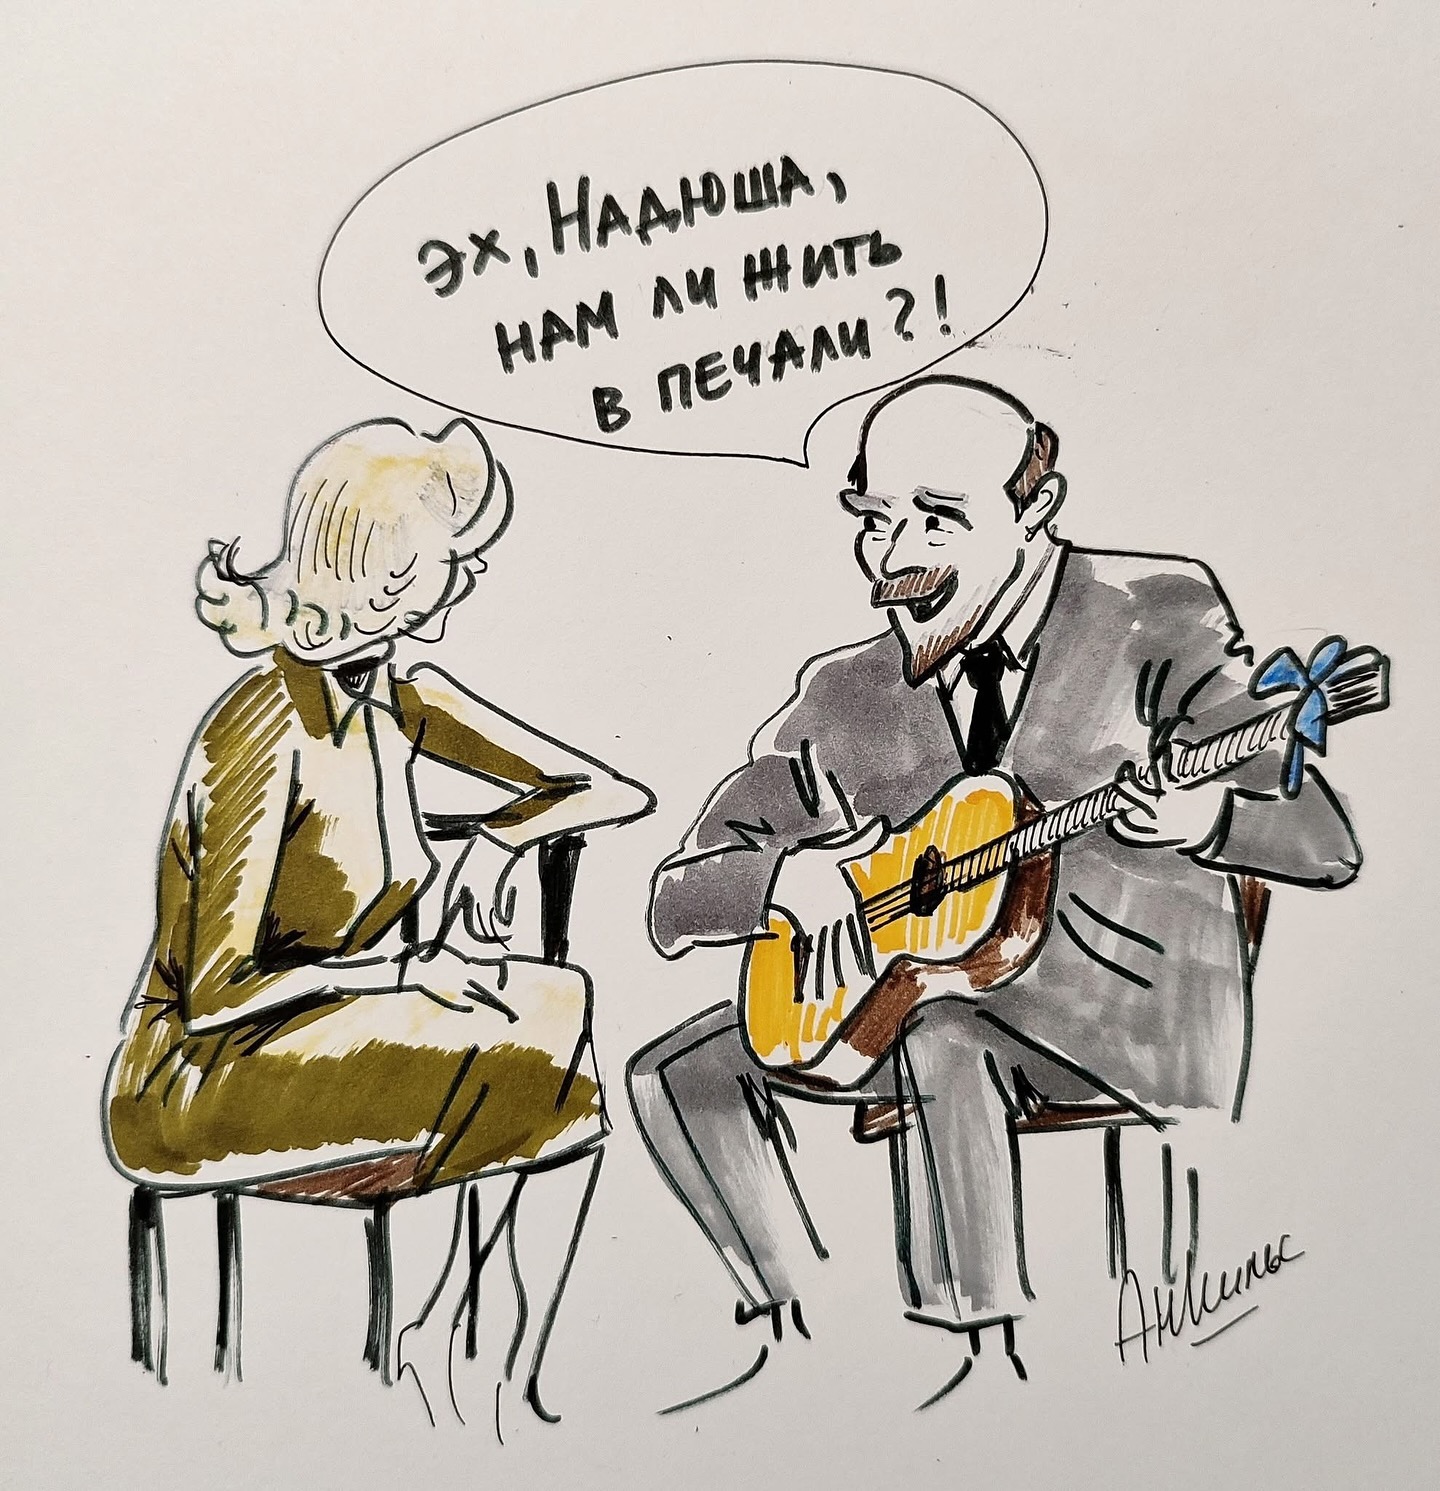 Эх, Надюша,
нам ли жить
в печали?!